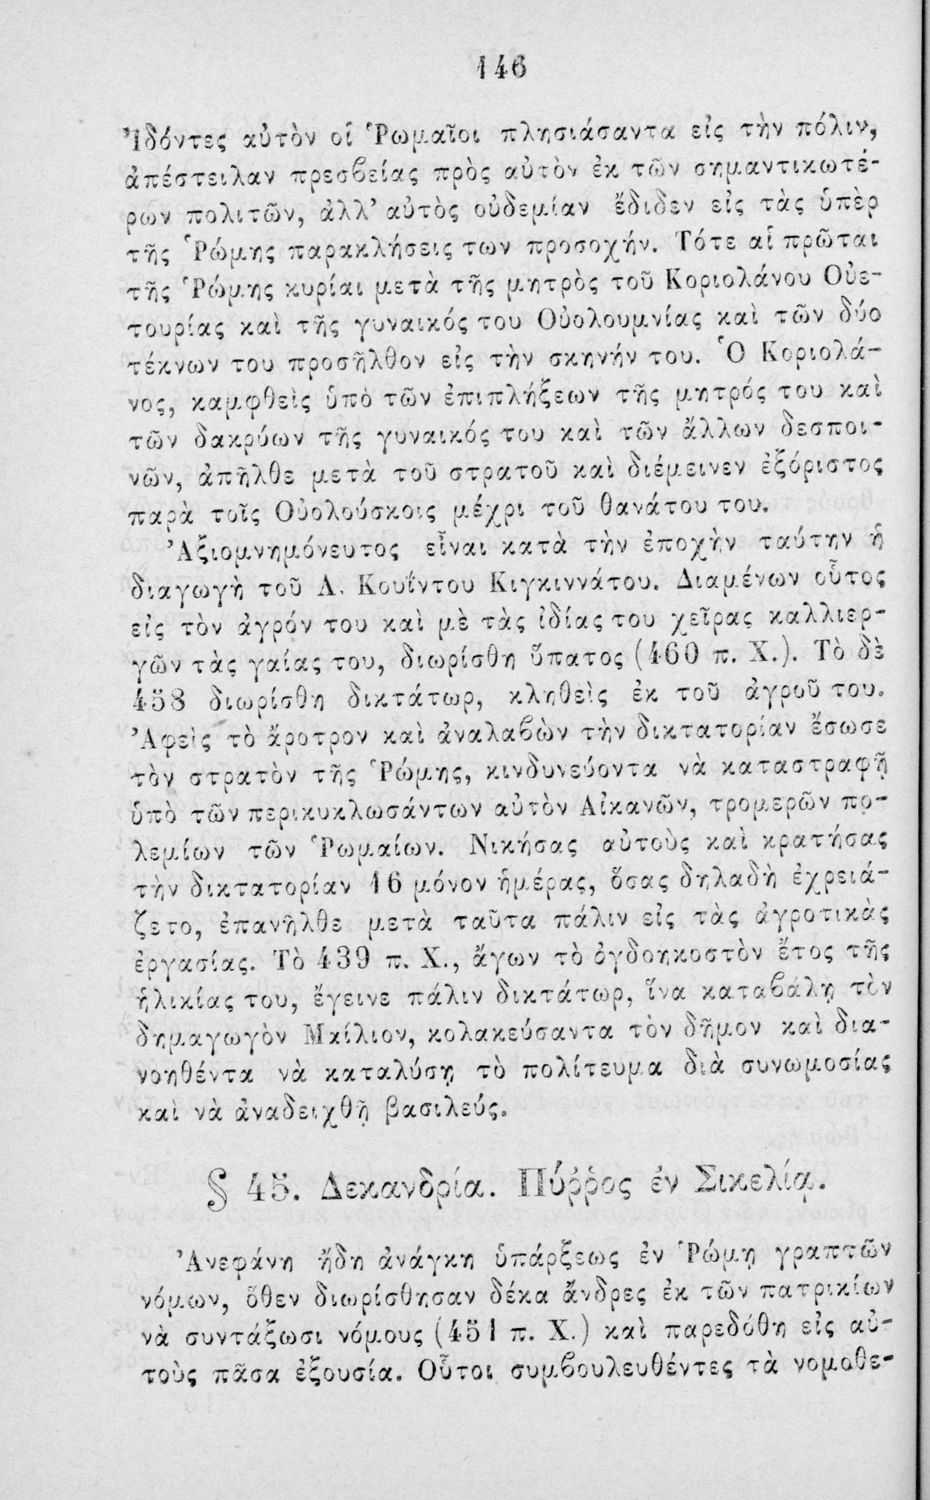 146
Ἰδόντες αὐτὸν οἱ Ῥωμαῖοι πλησιάσαντα εἰς τὴν πόλιν,
ἀπέστειλαν πρεσβείας πρὸς αὐτὸν ἐκ τῶν σημαντικωτέ-
ρων πολιτῶν, ἀλλ’ αὐτὸς οὐδεμίαν ἔδιδεν εἰς τὰς ὑπὲρ
τῆς Ῥώμης παρακλήσεις των προσοχήν. Τότε αἱ πρῶται
τῆς Ῥώμης κυρίαι μετὰ τῆς μητρὸς τοῦ Κοριολάνου Οὐε-
τουρίας καὶ τῆς γυναικός του Οὐολουμνίας καὶ τῶν δύο
τέκνων του προσῆλθον εἰς τὴν σκηνήν του. Ὁ Κοριολά-
νος, καμφθεὶς ὑπὸ τῶν ἐπιπλήξεων τῆς μητρός του καὶ
τῶν δακρύων τῆς γυναικός του καὶ τῶν ἄλλων δεσποι-
νῶν, ἀπῆλθε μετὰ τοῦ στρατοῦ καὶ διέμεινεν ἐξόριστος
παρὰ τοῖς Οὐολούσκοις μέχρι τοῦ θανάτου του.
Ἀξιομνημόνευτος εἶναι κατὰ τὴν ἐποχὴν ταύτην ἡ
διαγωγὴ τοῦ Λ. Κουΐντου Κιγκιννάτου. Διαμένων οὗτος
εἰς τὸν ἀγρόν του καὶ μὲ τὰς ἰδίας του χεῖρας καλλιερ-
γῶν τὰς γαίας του, διωρίσθη ὕπατος (460 π. Χ.). Τὸ δὲ
458 διωρίσθη δικτάτωρ, κληθεὶς ἐκ τοῦ ἀγροῦ του.
Ἀφεὶς τὸ ἄροτρον καὶ ἀναλαβὼν τὴν δικτατορίαν ἔσωσε
τὸν στρατὸν τῆς Ῥώμης, κινδυνεύοντα νὰ καταστραφῇ
ὑπὸ τῶν περικυκλωσάντων αὐτὸν Αἰκανῶν, τρομερῶν πο-
λεμίων τῶν Ῥωμαίων. Νικήσας αὐτοὺς καὶ κρατήσας
τὴν δικτατορίαν 16 μόνον ἡμέρας, ὅσας δηλαδὴ ἐχρειά-
ζετο, ἐπανῆλθε μετὰ ταῦτα πάλιν εἰς τὰς ἀγροτικὰς
ἐργασίας. Τὸ 439 π. Χ., ἄγων τὸ ὀγδοηκοστὸν ἔτος τῆς
ἡλικίας του, ἔγεινε πάλιν δικτάτωρ, ἵνα καταβάλῃ τὸν
δημαγωγὸν Μαίλιον, κολακεύσαντα τὸν δῆμον καὶ δια-
νοηθέντα νὰ καταλύσῃ τὸ πολίτευμα διὰ συνωμοσίας
καὶ νὰ ἀναδειχθῇ βασιλεύς.
§ 45. Δεκανδρία. Πύῤῥος ἐν Σικελίᾳ.
Ἀνεφάνη ἤδη ἀνάγκη ὑπάρξεως ἐν Ῥώμῃ γραπτῶν
νόμων, ὅθεν διωρίσθησαν δέκα ἄνδρες ἐκ τῶν πατρικίων
νὰ συντάξωσι νόμους (451 π. Χ.) καὶ παρεδόθη εἰς αὐ-
τοὺς πᾶσα ἐξουσία. Οὗτοι συμβουλευθέντες τὰ νομοθε-